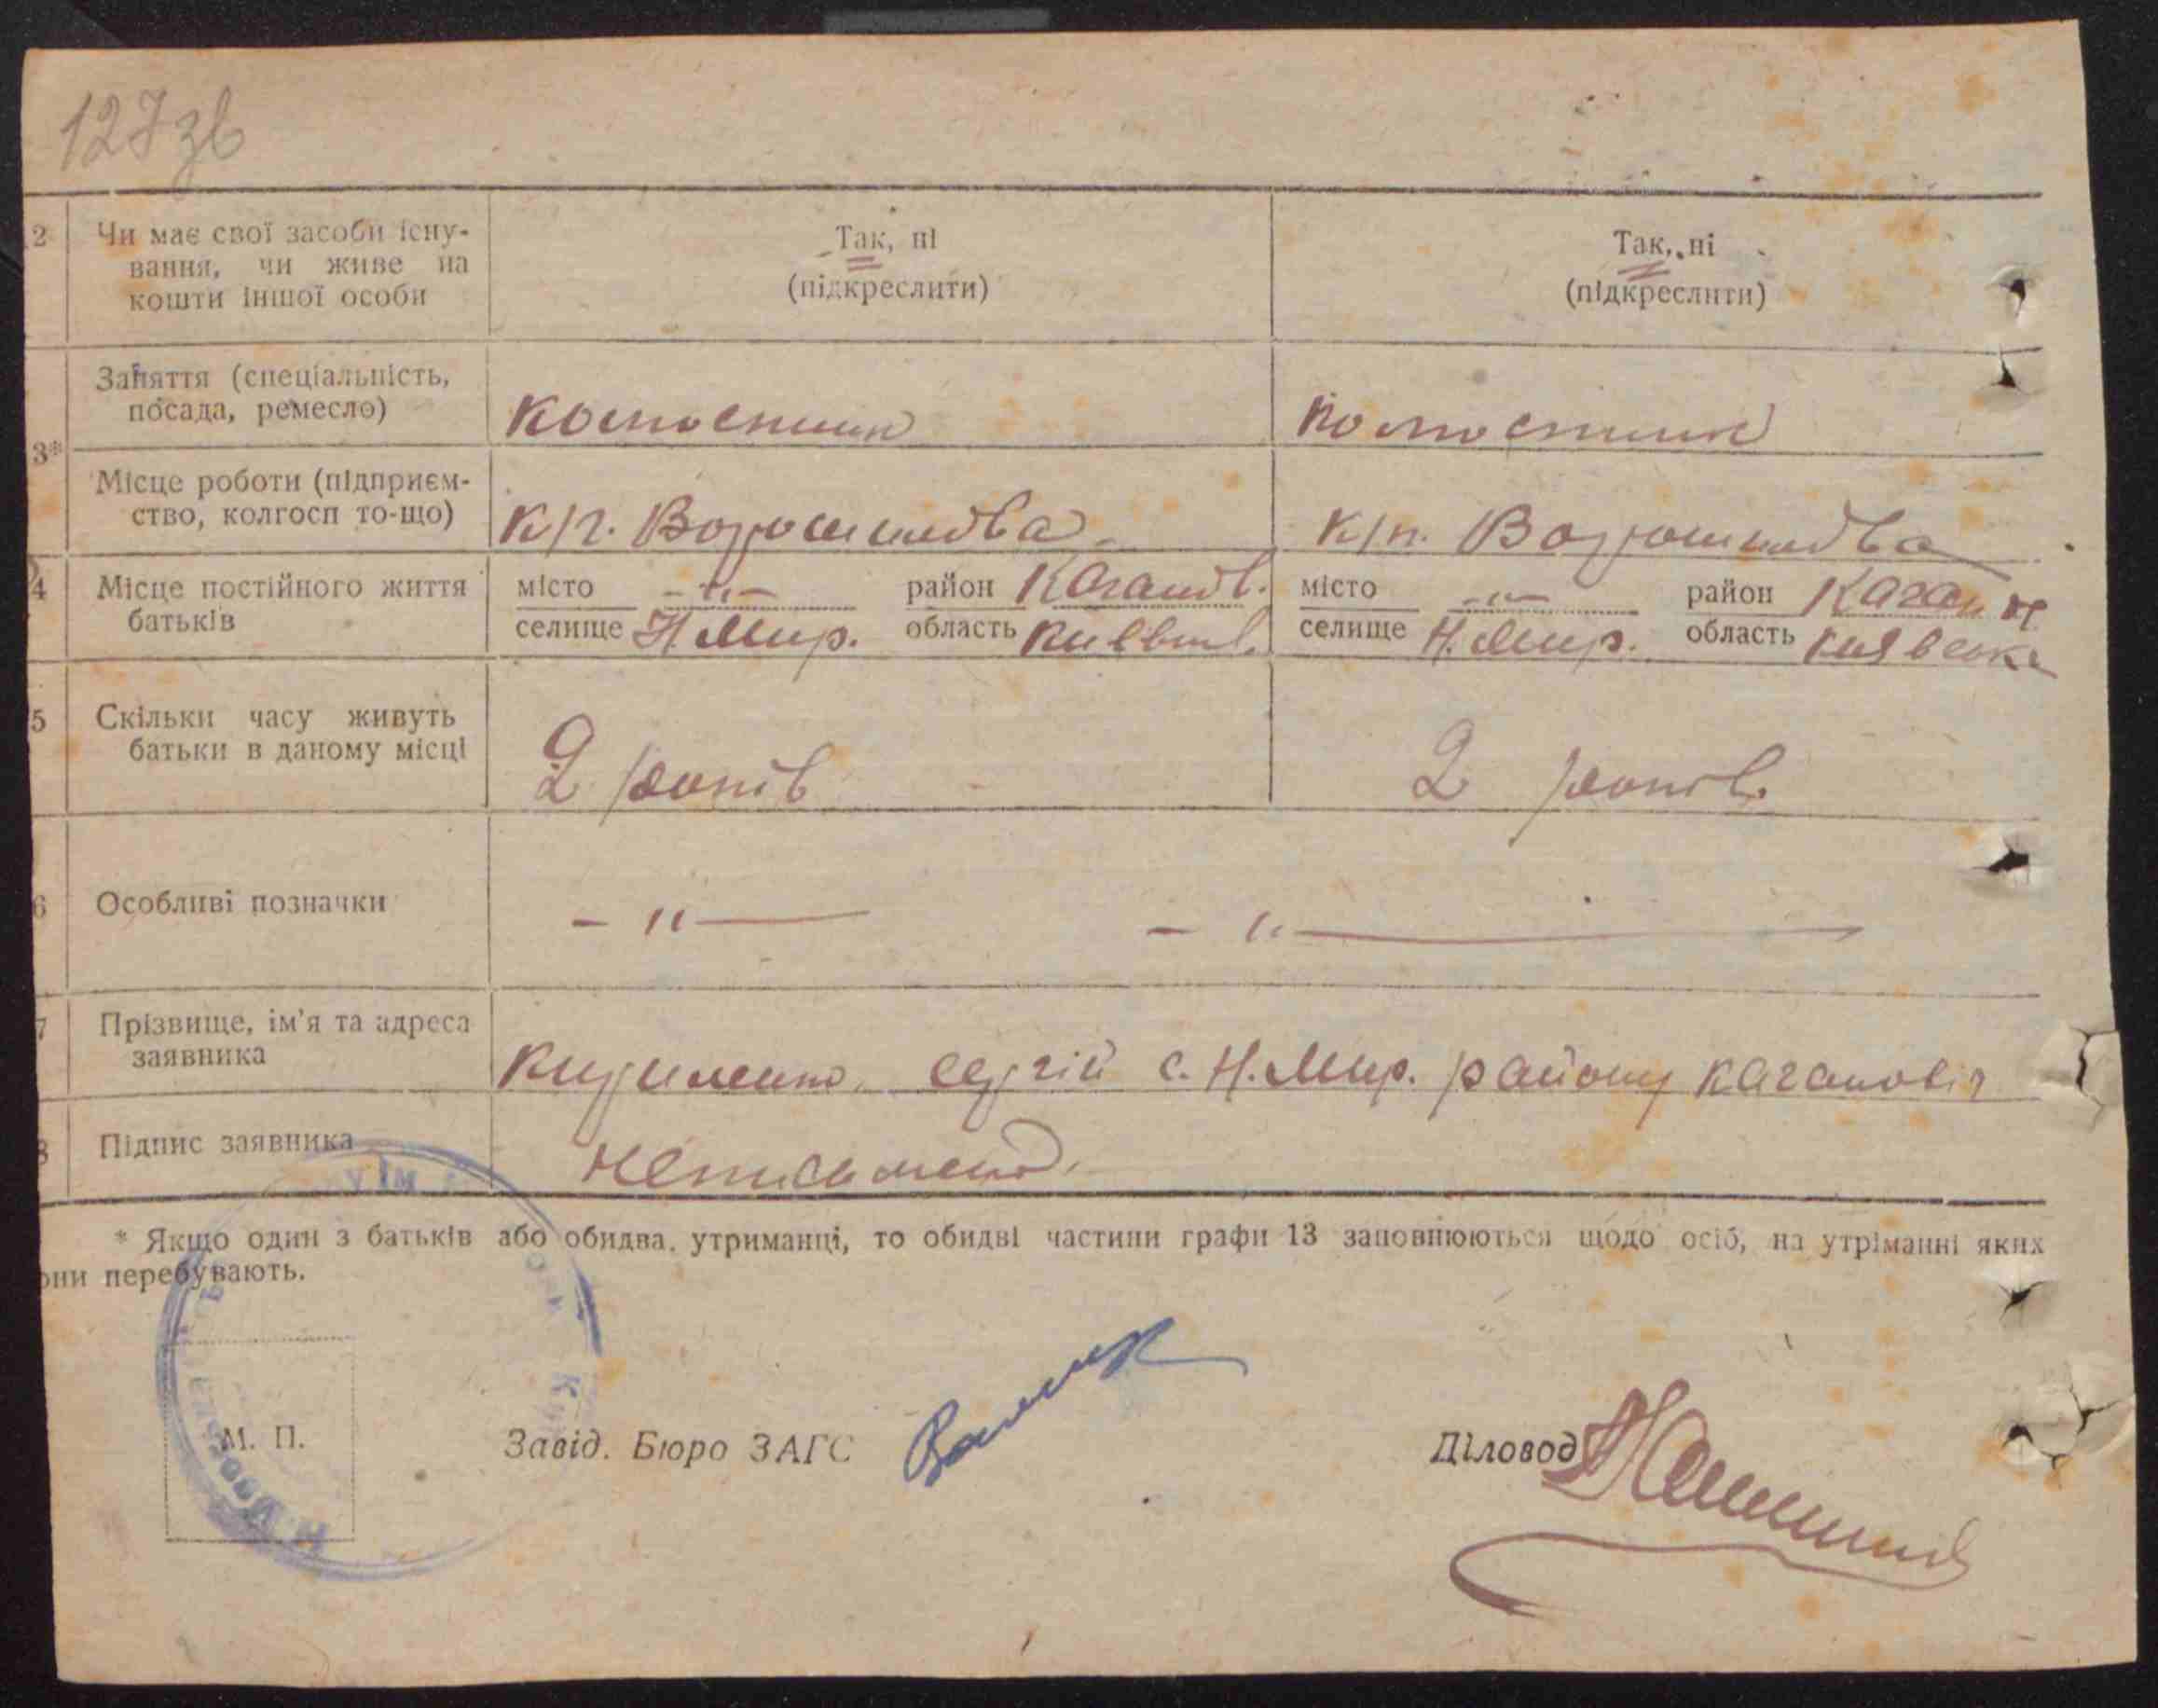 127 зв
2 Чи має свої засоби існу-
вання, чи живе на
кошти іншої особи
Так, ні
(підкреслити)
Так, ні
(підкреслити)
3*
Заняття (спеціальність,
посада, ремесло)
Місце роботи (підприєм-
ство, колгосп то-що)
к/г. Ворошилова
к/п. Ворошилова
4 Місце постійного життя
батьків
місто -"- район Каганов.
селище Н. Мир. область
місто -"- район Каган
селище Н. Мир. область Київська
5 Скільки часу живуть
батьки в даному місці
2 років
2 років.
6 Особливі позначки
- " —
- " —
7 Прізвище, ім'я та адреса
заявника
Кириленко Сергій с. Н. Мир. району Каганович
8 Підпис заявника
* Якщо один з батьків або обидва, утриманці, то обидві частини графи 13 заповнюються щодо осіб, на утріманні яких
они перебувають.
М. П.
Завід. Бюро ЗАГС
Діловод